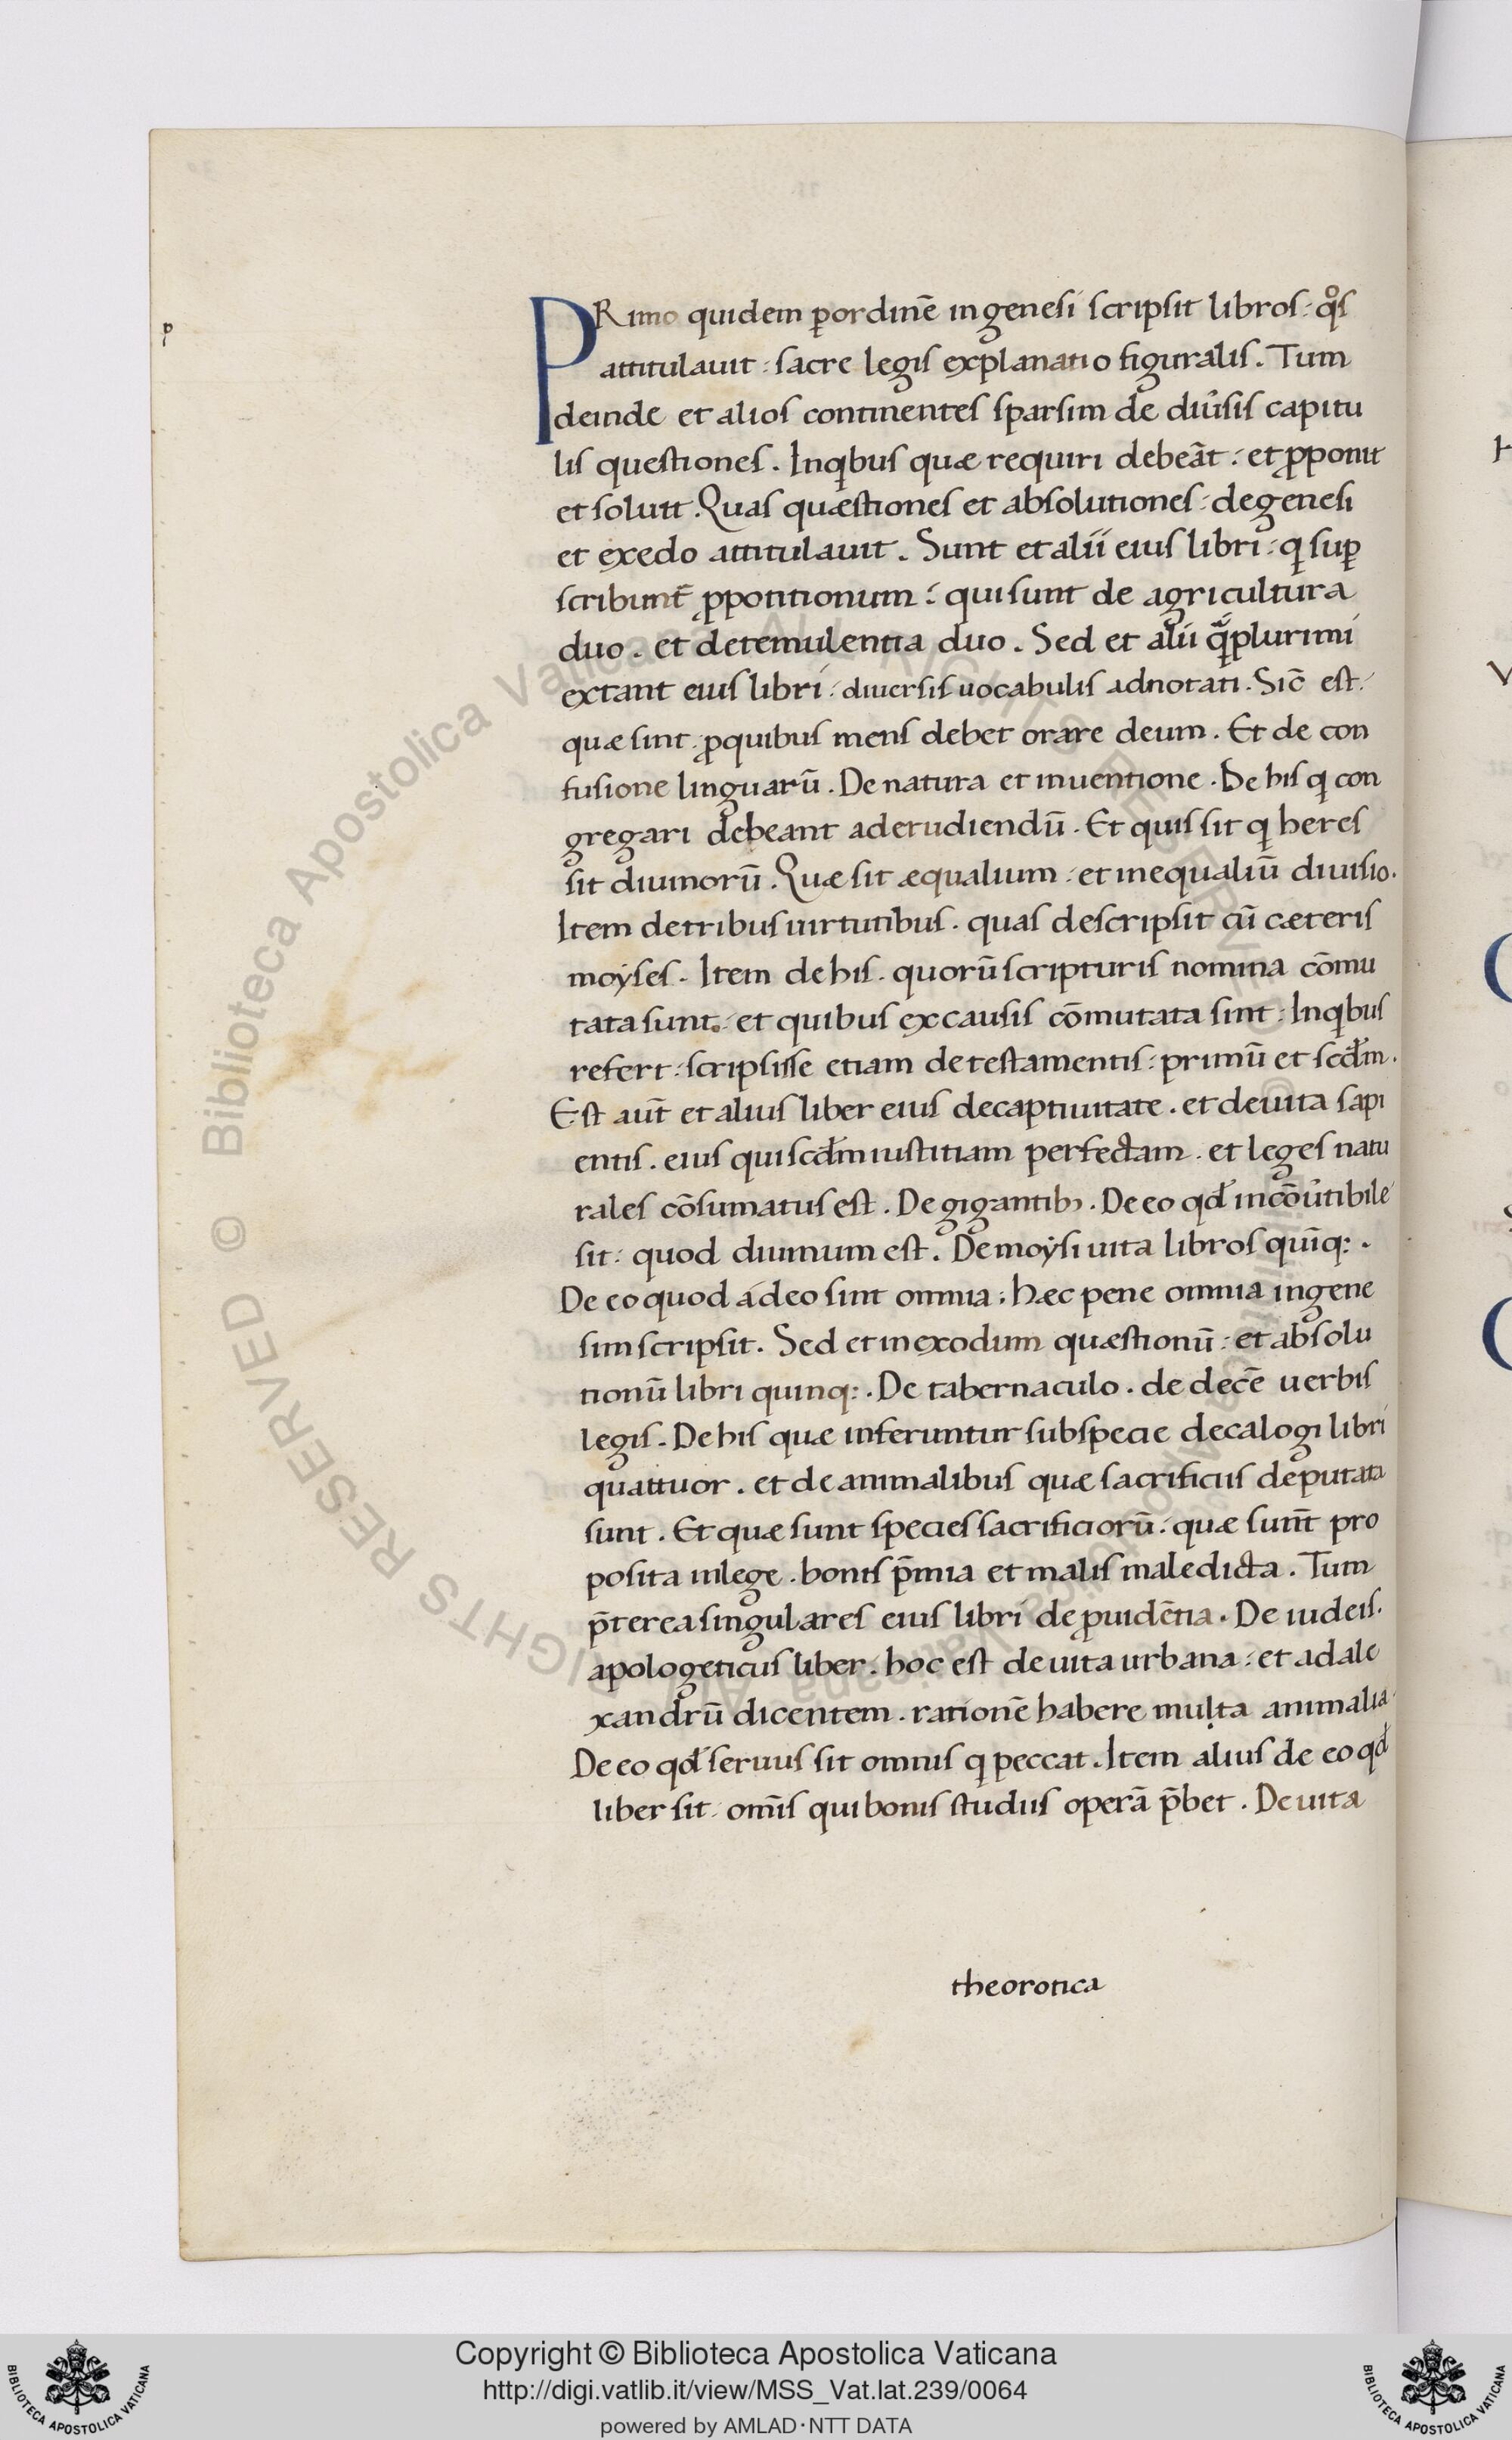 p
PRimo quidem p̱ordinē ingenesi scripsit libros: qͦs
attitulauit: sacre legis explanatio figuralis. Tum
deinde et alios continentes sparsim de diu͛sis capitu
lis questiones. Inqbus quæ requiri debeāt: et ꝓponit
et soluit. Quas quæstiones et absolutiones: degenesi
et exedo attitulauit. Sunt et alii eius libri: q suꝑ
scribunt̄ ꝓpotitionum: qui sunt de agricultura
duo. et detemulentia duo. Sed et alii
extant eius libri: diuersis uocabulis adnotati. Sic̄ est:
quæ sint: ꝓquibus mens debet orare deum. Et de con
fusione linguarū. De natura et inuentione. De his q con
gregari debeant aderudiendū. Et quis sit q heres
sit diuinorū. Quæ sit æqualium: et inequaliū diuisio.
Item detribus uirtutibus. quas descripsit cū cæteris
moyses. Item dehis. quorū scripturis nomina cōmu
tata sunt: et quibus excausis cōmutata sint: Inqbus
refert: scripsisse etiam detestamentis: primū et scd̄m.
Est aut̄ et alius liber eius decaptiuitate. et deuita sapi
entis. eius qui scd̄m iustitiam perfectam. et leges natu
rales cōsumatus est. De gigantibꝫ. De eo qd̄ incōu͛tibile
sit: quod diuinum est. De moysi uita libros quīq:.
De eo quod a deo sint omnia: hæc pene omnia ingene
sim scripsit. Sed et inexodum quæstionū: et absolu
tionū libri quinq:. De tabernaculo. de decē uerbis
legis. De his quæ inferuntur subspecie decalogi libri
quattuor. et de animalibus quæ sacrificiis deputata
sunt. Et quæ sunt species sacrificiorū: quæ sun̄t pro
posita inlege. bonis p̄mia et malis maledicta. Tum
p̄terea singulares eius libri de ꝓuidētia. De iudeis.
apologeticus liber. hoc est de uita urbana: et adale
xandrū dicentem. rationē habere multa animalia.
De eo qd̄ seruus sit omnis q peccat. Item alius de eo qd̄
liber sit: om̄is qui bonis studiis operā p̄bet. De uita
theorotica
Copyright © Biblioteca Apostolica Vaticana
http://digi.vatlib.it/view/MSS_Vat.lat.239/0064
powered by AMLAD·NTT DATA
BIBLIOTECA APOSTOLICA VATICANA
BIBLIOTECA APOSTOLICA VATICANA